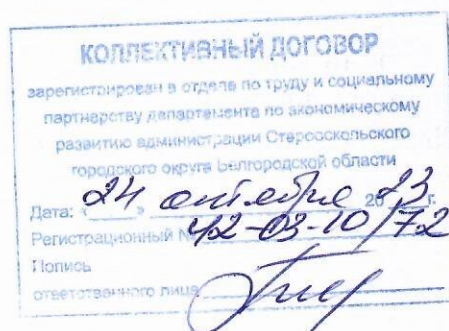 КОЛЛЕКТИВНЫЙ ДОГОВОР
зарегистрирован в отделе по труду и социальному
партнерству департамента по экономическому
развитию администрации Старооскольского
городского округа Белгородской области
Дата: «24» октября 2023 г.
Регистрационный № 42-03-10/72
Попись
ответственного лица